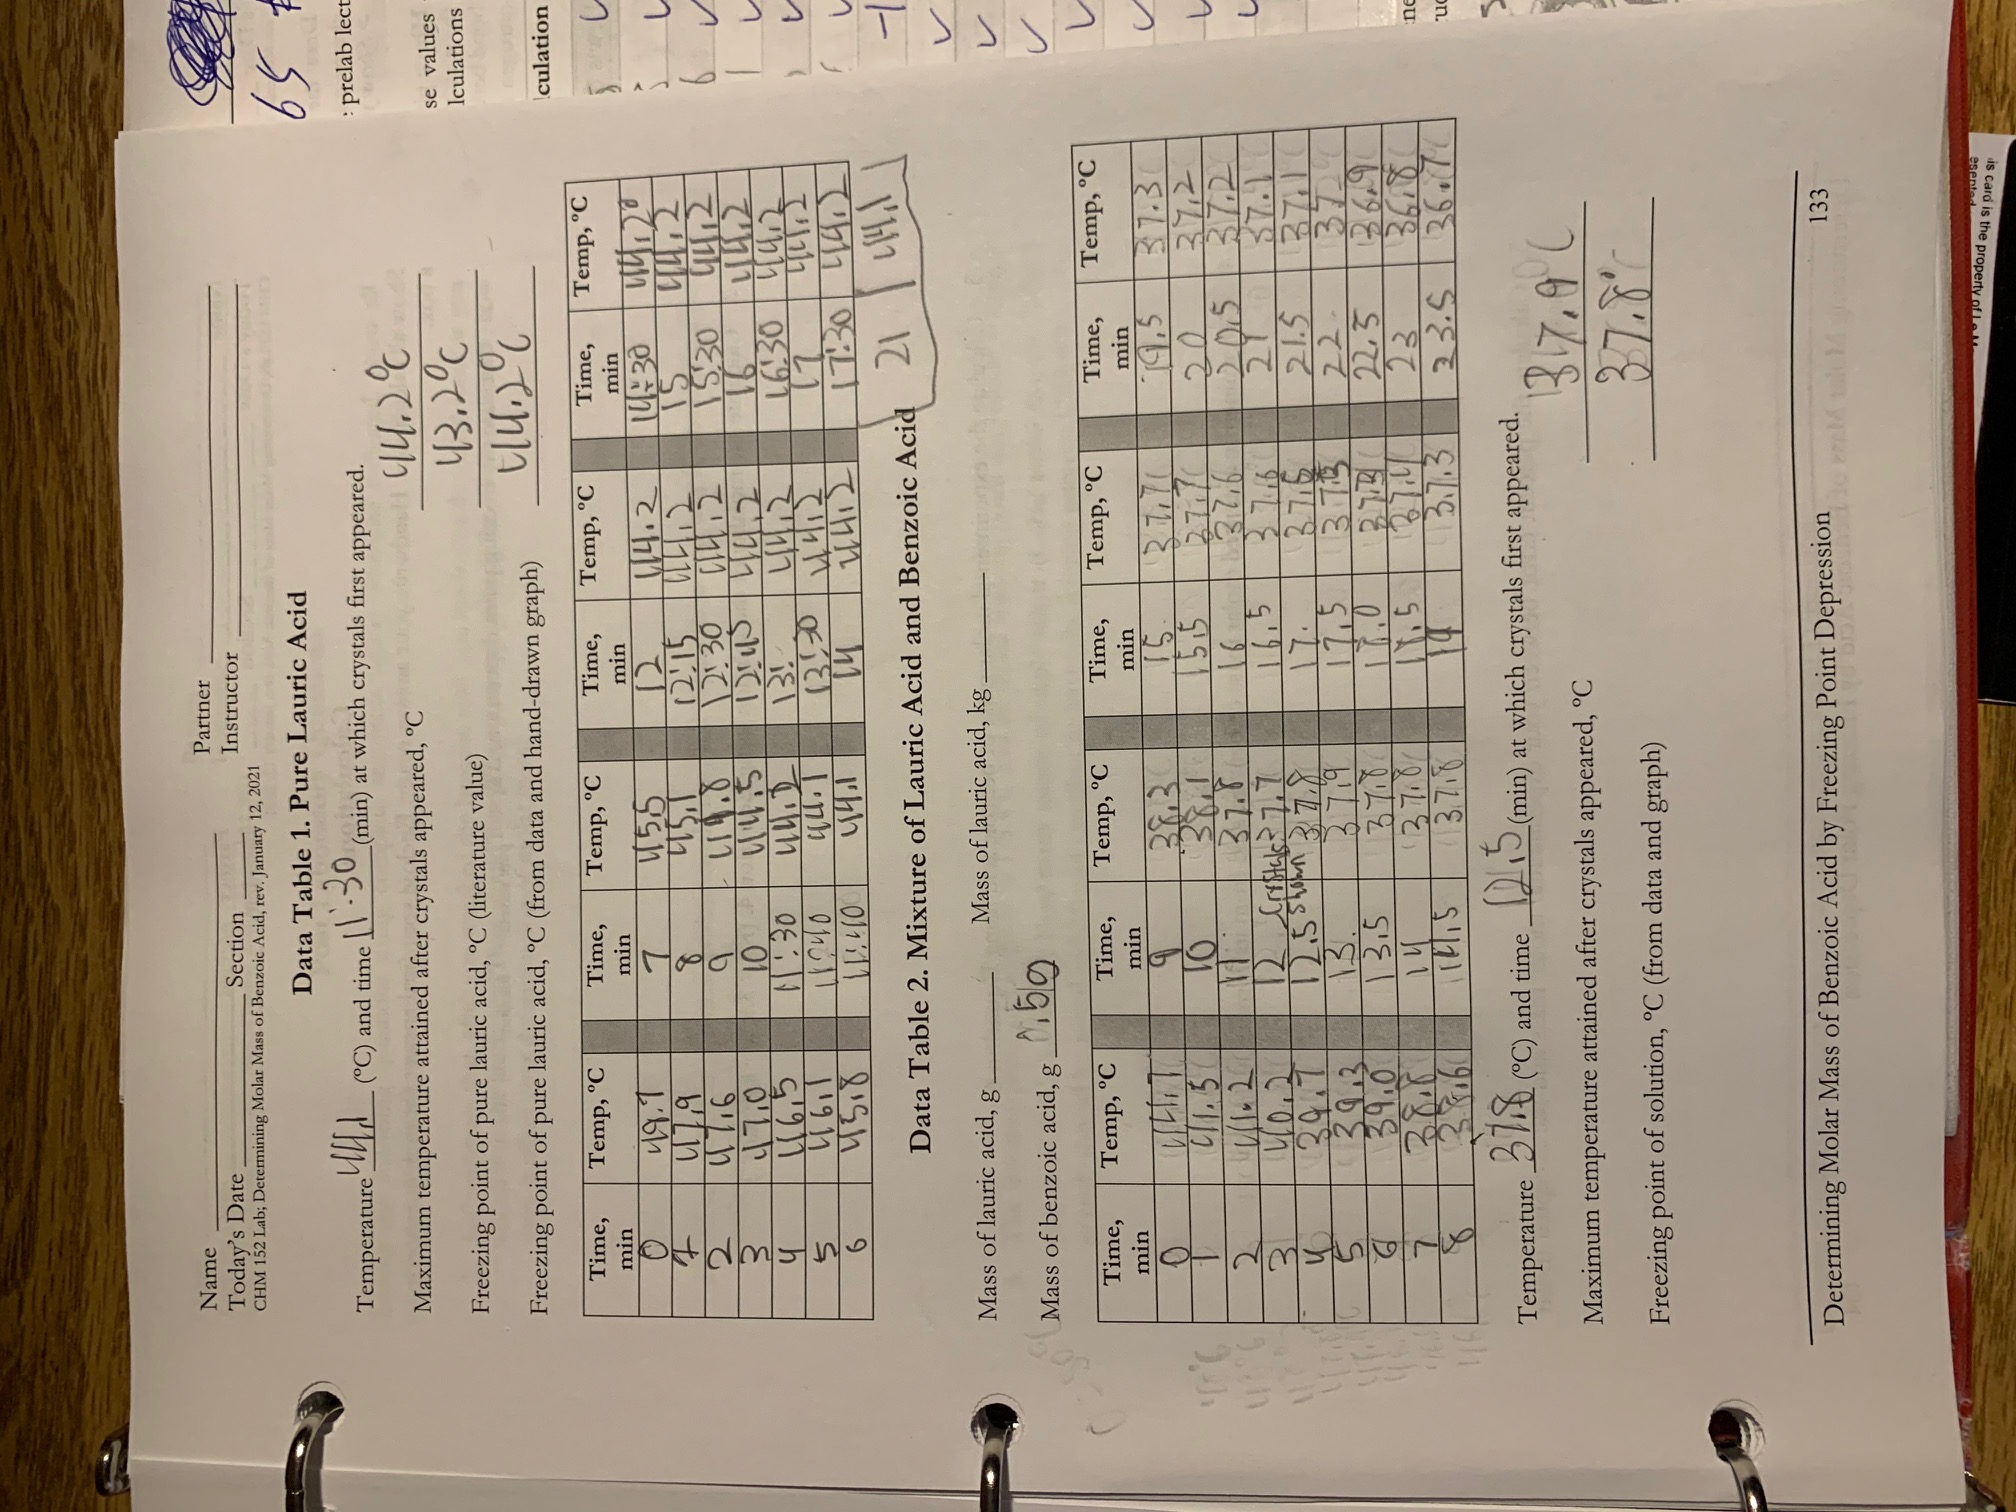 Name Partner
Today's Date Section Instructor
CHM 152 Lab; Determining Molar Mass of Benzoic Acid, rev. January 12, 2021
Data Table 1. Pure Lauric Acid
Temperature 44.1 (°C) and time 11:30 (min) at which crystals first appeared.
Maximum temperature attained after crystals appeared, °C 44.2°C
Freezing point of pure lauric acid, °C (literature value) 43.2°C
Freezing point of pure lauric acid, °C (from data and hand-drawn graph) 44.2°C
Time, min Temp, °C Time, min Temp, °C Time, min Temp, °C Time, min Temp, °C
0 49.7 7 45.5 12 44.2 14:30 44.2°
1 47.9 8 45.1 12:15 44.2 15 44.2
2 47.6 9 44.8 12:30 44.2 15:30 44.2
3 47.0 10 44.5 12:45 44.2 16 44.2
4 46.5 11:30 44.2 13: 44.2 16:30 44.2
5 46.1 11:40 44.1 13:30 44.2 17 44.2
6 45.8 11:40 44.1 14 44.2 17:30 44.2
21 44.1
Data Table 2. Mixture of Lauric Acid and Benzoic Acid
Mass of lauric acid, g Mass of lauric acid, kg
Mass of benzoic acid, g
Time, min Temp, °C Time, min Temp, °C Time, min Temp, °C Time, min Temp, °C
0 9 38.3 15 37.7 19.5 37.3
1 41.5 10 38.1 15.5 37.7 20 37.2
2 41.2 11 37.8 16 37.6 20.5 37.2
3 40.2 12 Crystals 37.7 16.5 37.6 21 37.1
4 39.7 12.5 shown 37.8 17. 21.5 37.1
5 39.3 13. 37.9 17.5 22 37
6 39.0 13.5 37.8 18.0 22.5 36.9
7 38.8 14 37.8 18.5 37.4 23 36.8
8 38.6 14.5 37.8 19 37.3 23.5 36.7
Temperature 37.8 (°C) and time 12.5 (min) at which crystals first appeared.
Maximum temperature attained after crystals appeared, °C 37.9°C
Freezing point of solution, °C (from data and graph) 37.8°C
Determining Molar Mass of Benzoic Acid by Freezing Point Depression 133
65
prelab lect
se values
lculations
culation
-1
is card is the property of